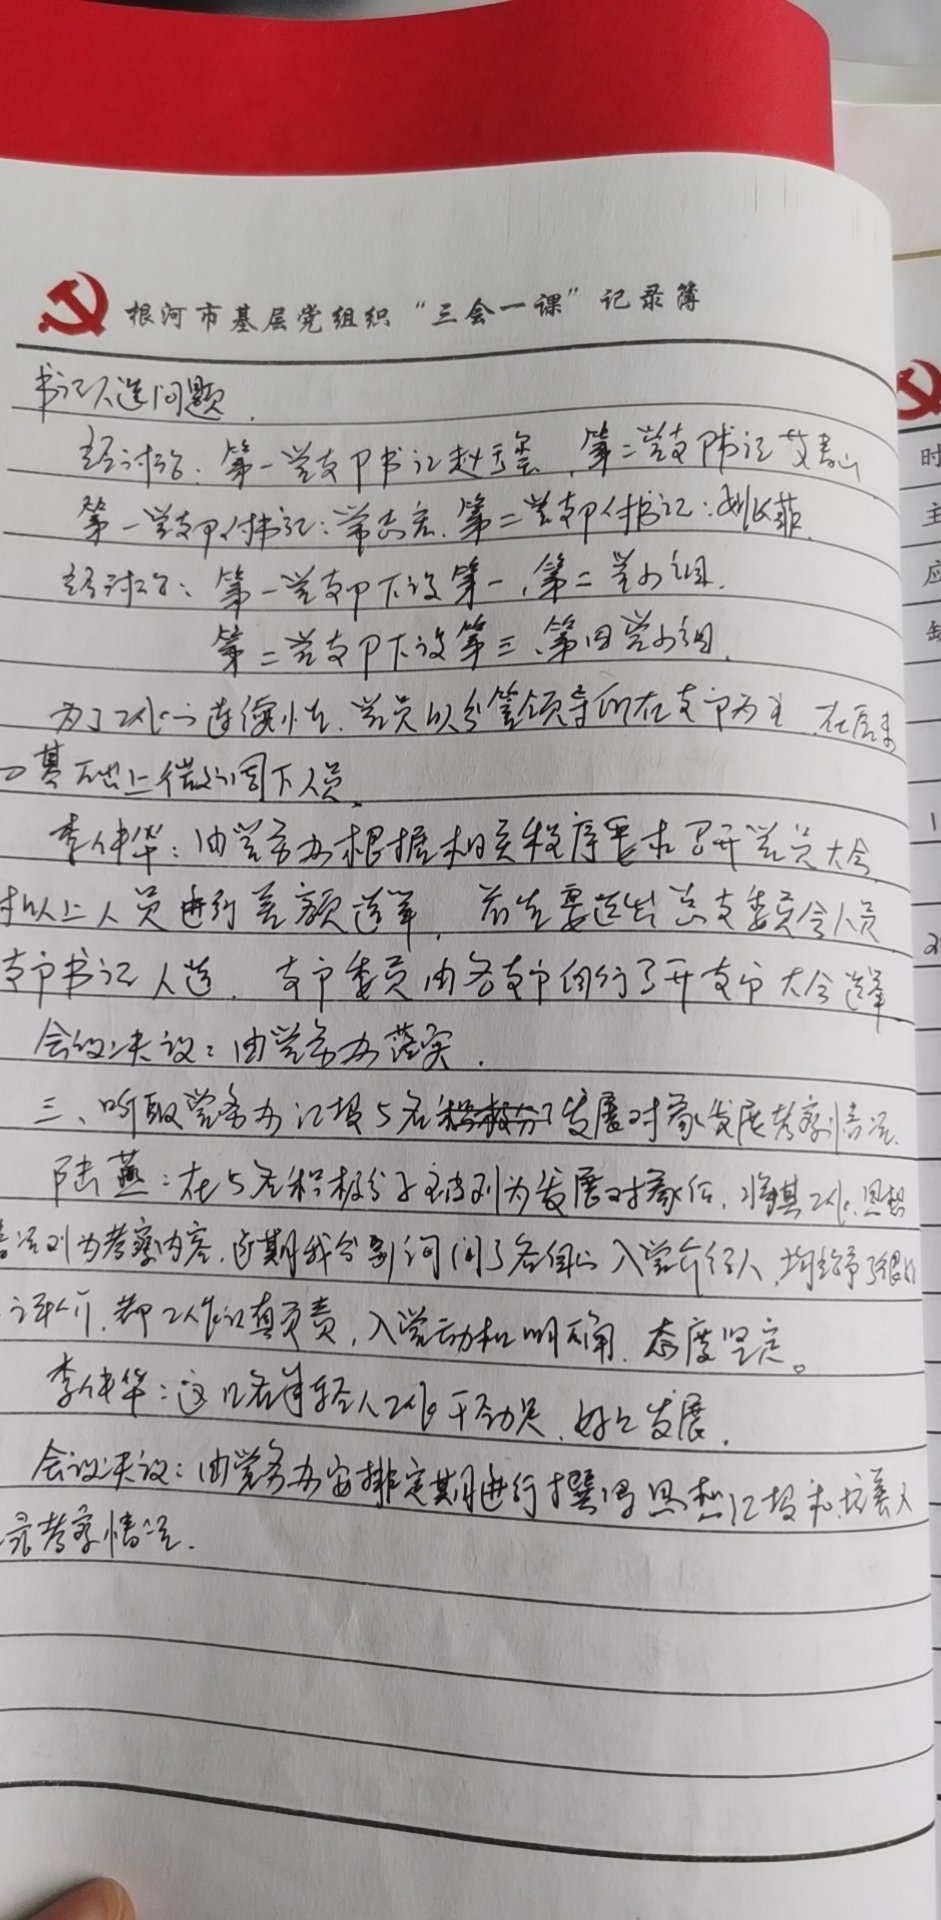 根河市基层党组织“三会一课”记录簿
书记人选问题.
经讨论:第一党支部书记赵、第二党支部书记艾春山
第一党支部付书记:常志宏.第二党支部付书记:菲.
经讨论:第一党支部下设第一、第二党小组.
第二党支部下设第三、第四党小组.
为了工作的连续性、党员以分管领导所在支部为主、在原来
的基础上做调下人员.
李伟华:由党务办根据相关程序要求召开党员大会,
对以上人员进行差额选举,首先要选出总支委员会人员
支部书记人选.支部委员由各支部自行召开支部大会选举
会议决议:由党务办落实.
三、听取党务办汇报5名发展对象发展考察情况.
陆燕:在5名积极分子被列为发展对象后,将其工作、思想
情况列为考察内容,近期我分别询问了各自的入党介绍人,均给予了很好
评价,都工作认真负责,入党动机明确、态度坚定。
李伟华:这几名年轻人工作干劲足,好好发展.
会议决议:由党务办安排定期进行撰写思想汇报和培养人
录考察情况.
时
主
应
缺
1
2